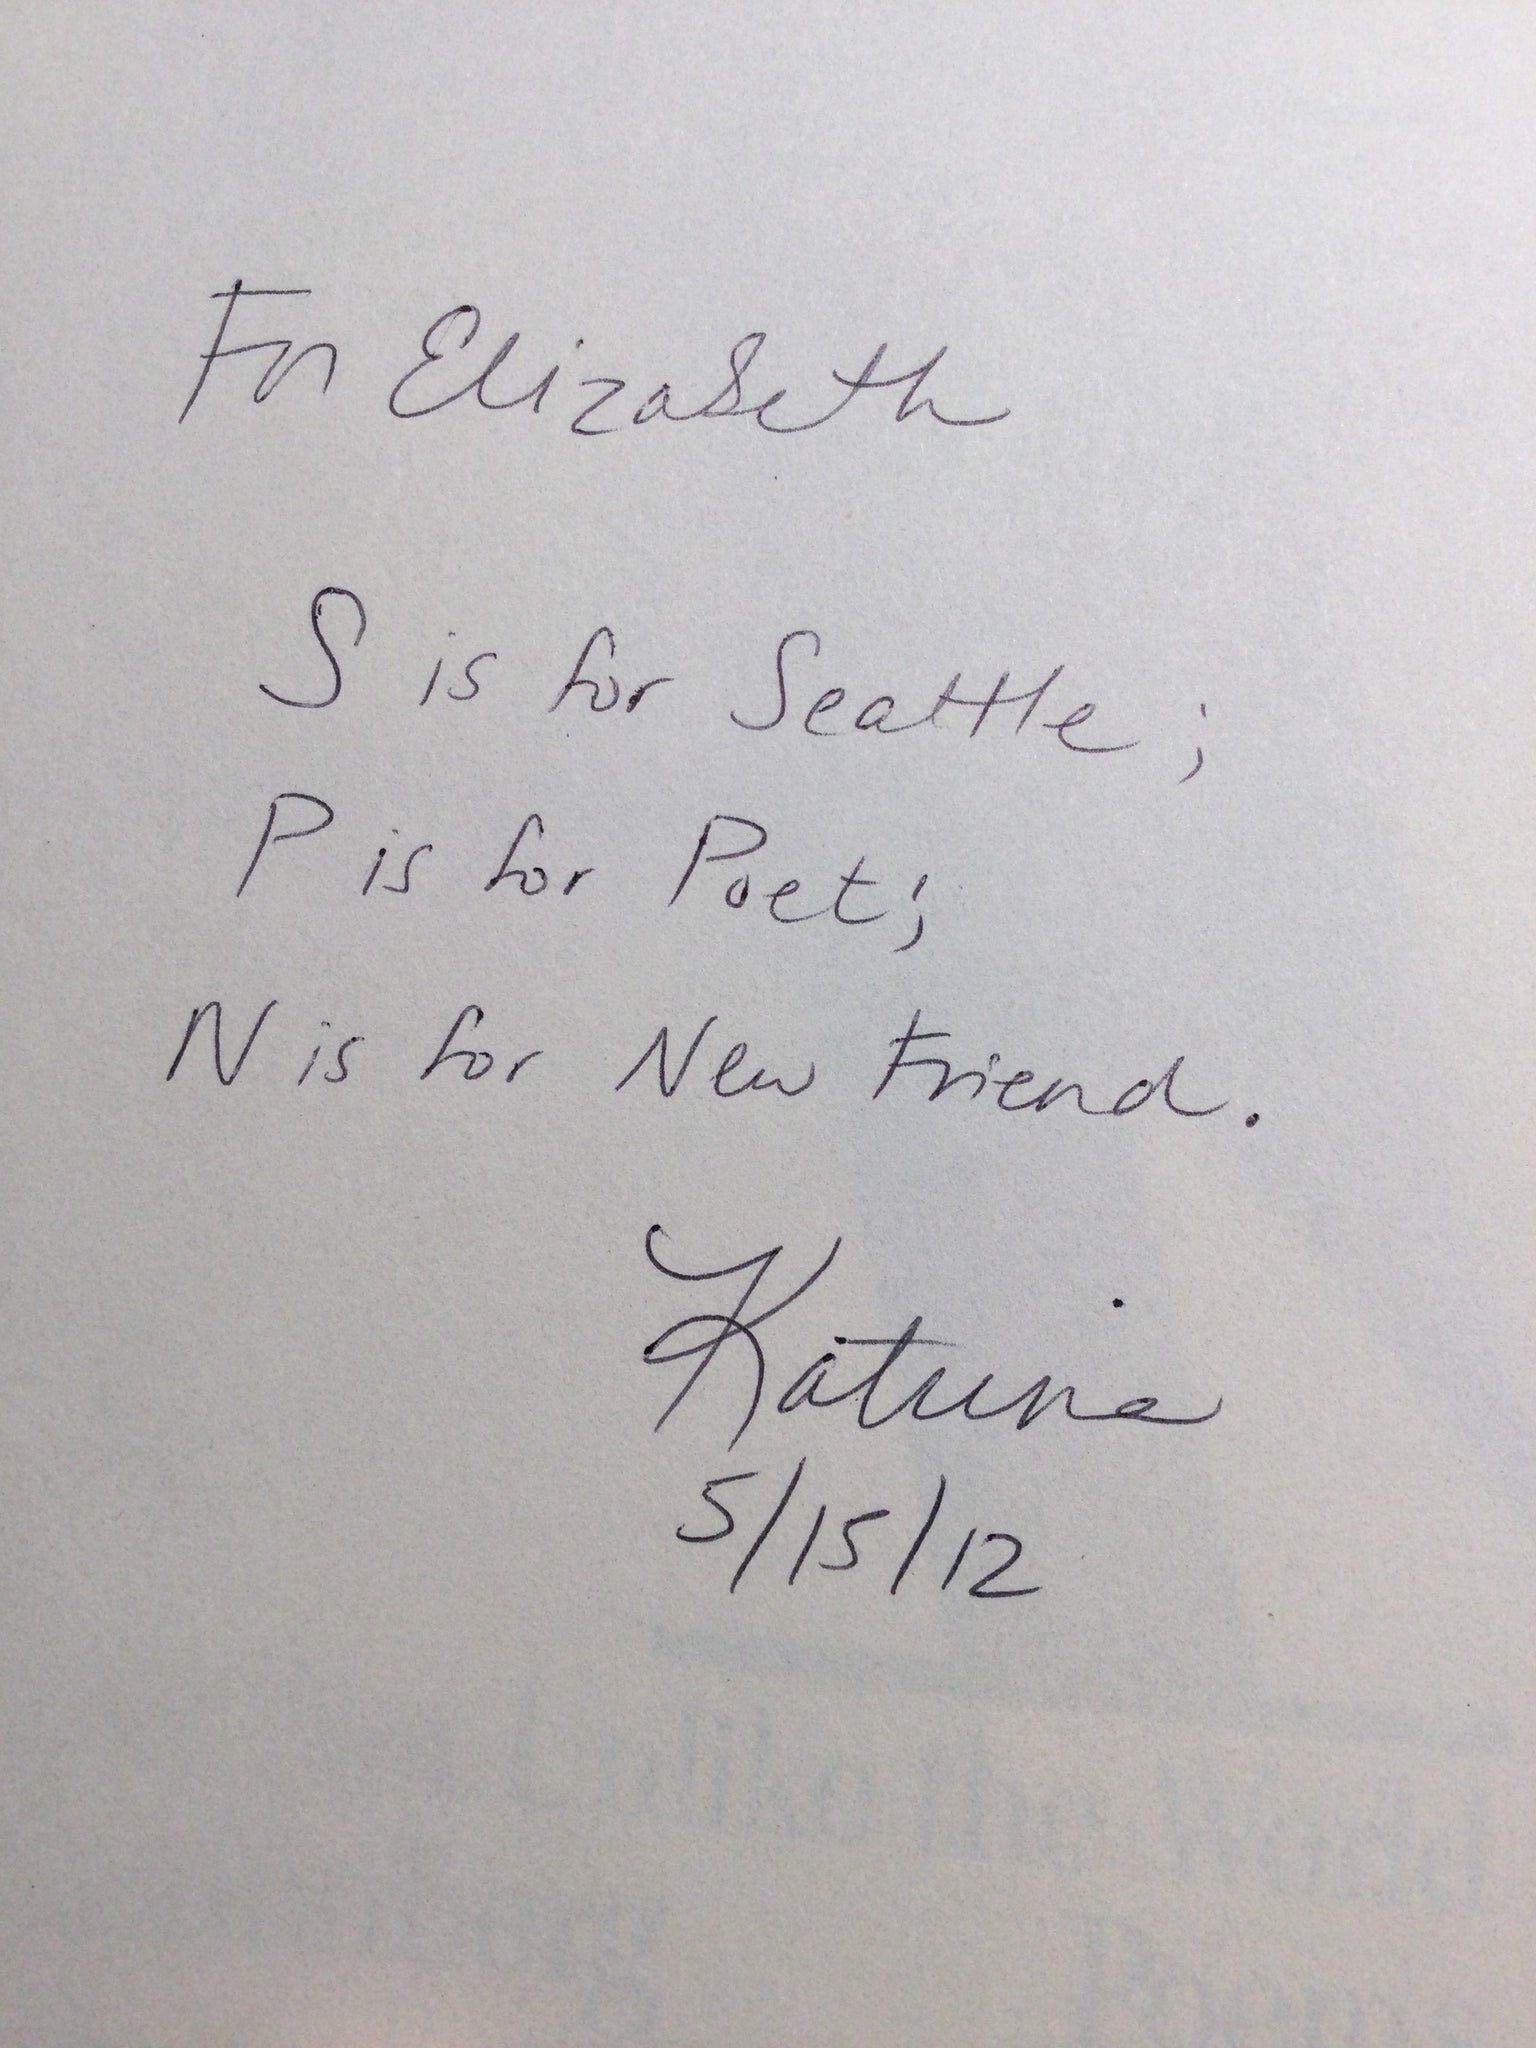 For Elizabeth
S is for Seattle;
P is for Poet;
N is for New Friend.
Katrina
5/15/12